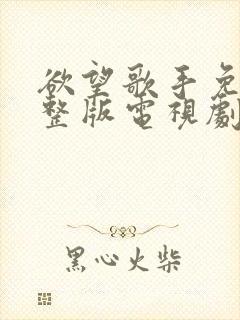 欲望歌手免
整版電視劇
黑心火柴